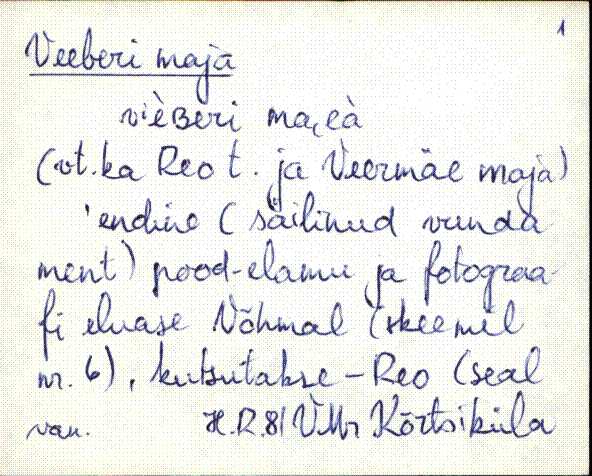 1
Veeberi maja
vièʙeri ma,eà
(vt. ka Reo t. ja Veermäe maja)
'endine (säilinud vunda
ment) pood-elamu ja fotograa-
fi eluase Võhmal (skeemil
nr. 6), kutsutakse - Reo (seal
van. H.R. 81 VMr Kõrtsiküla